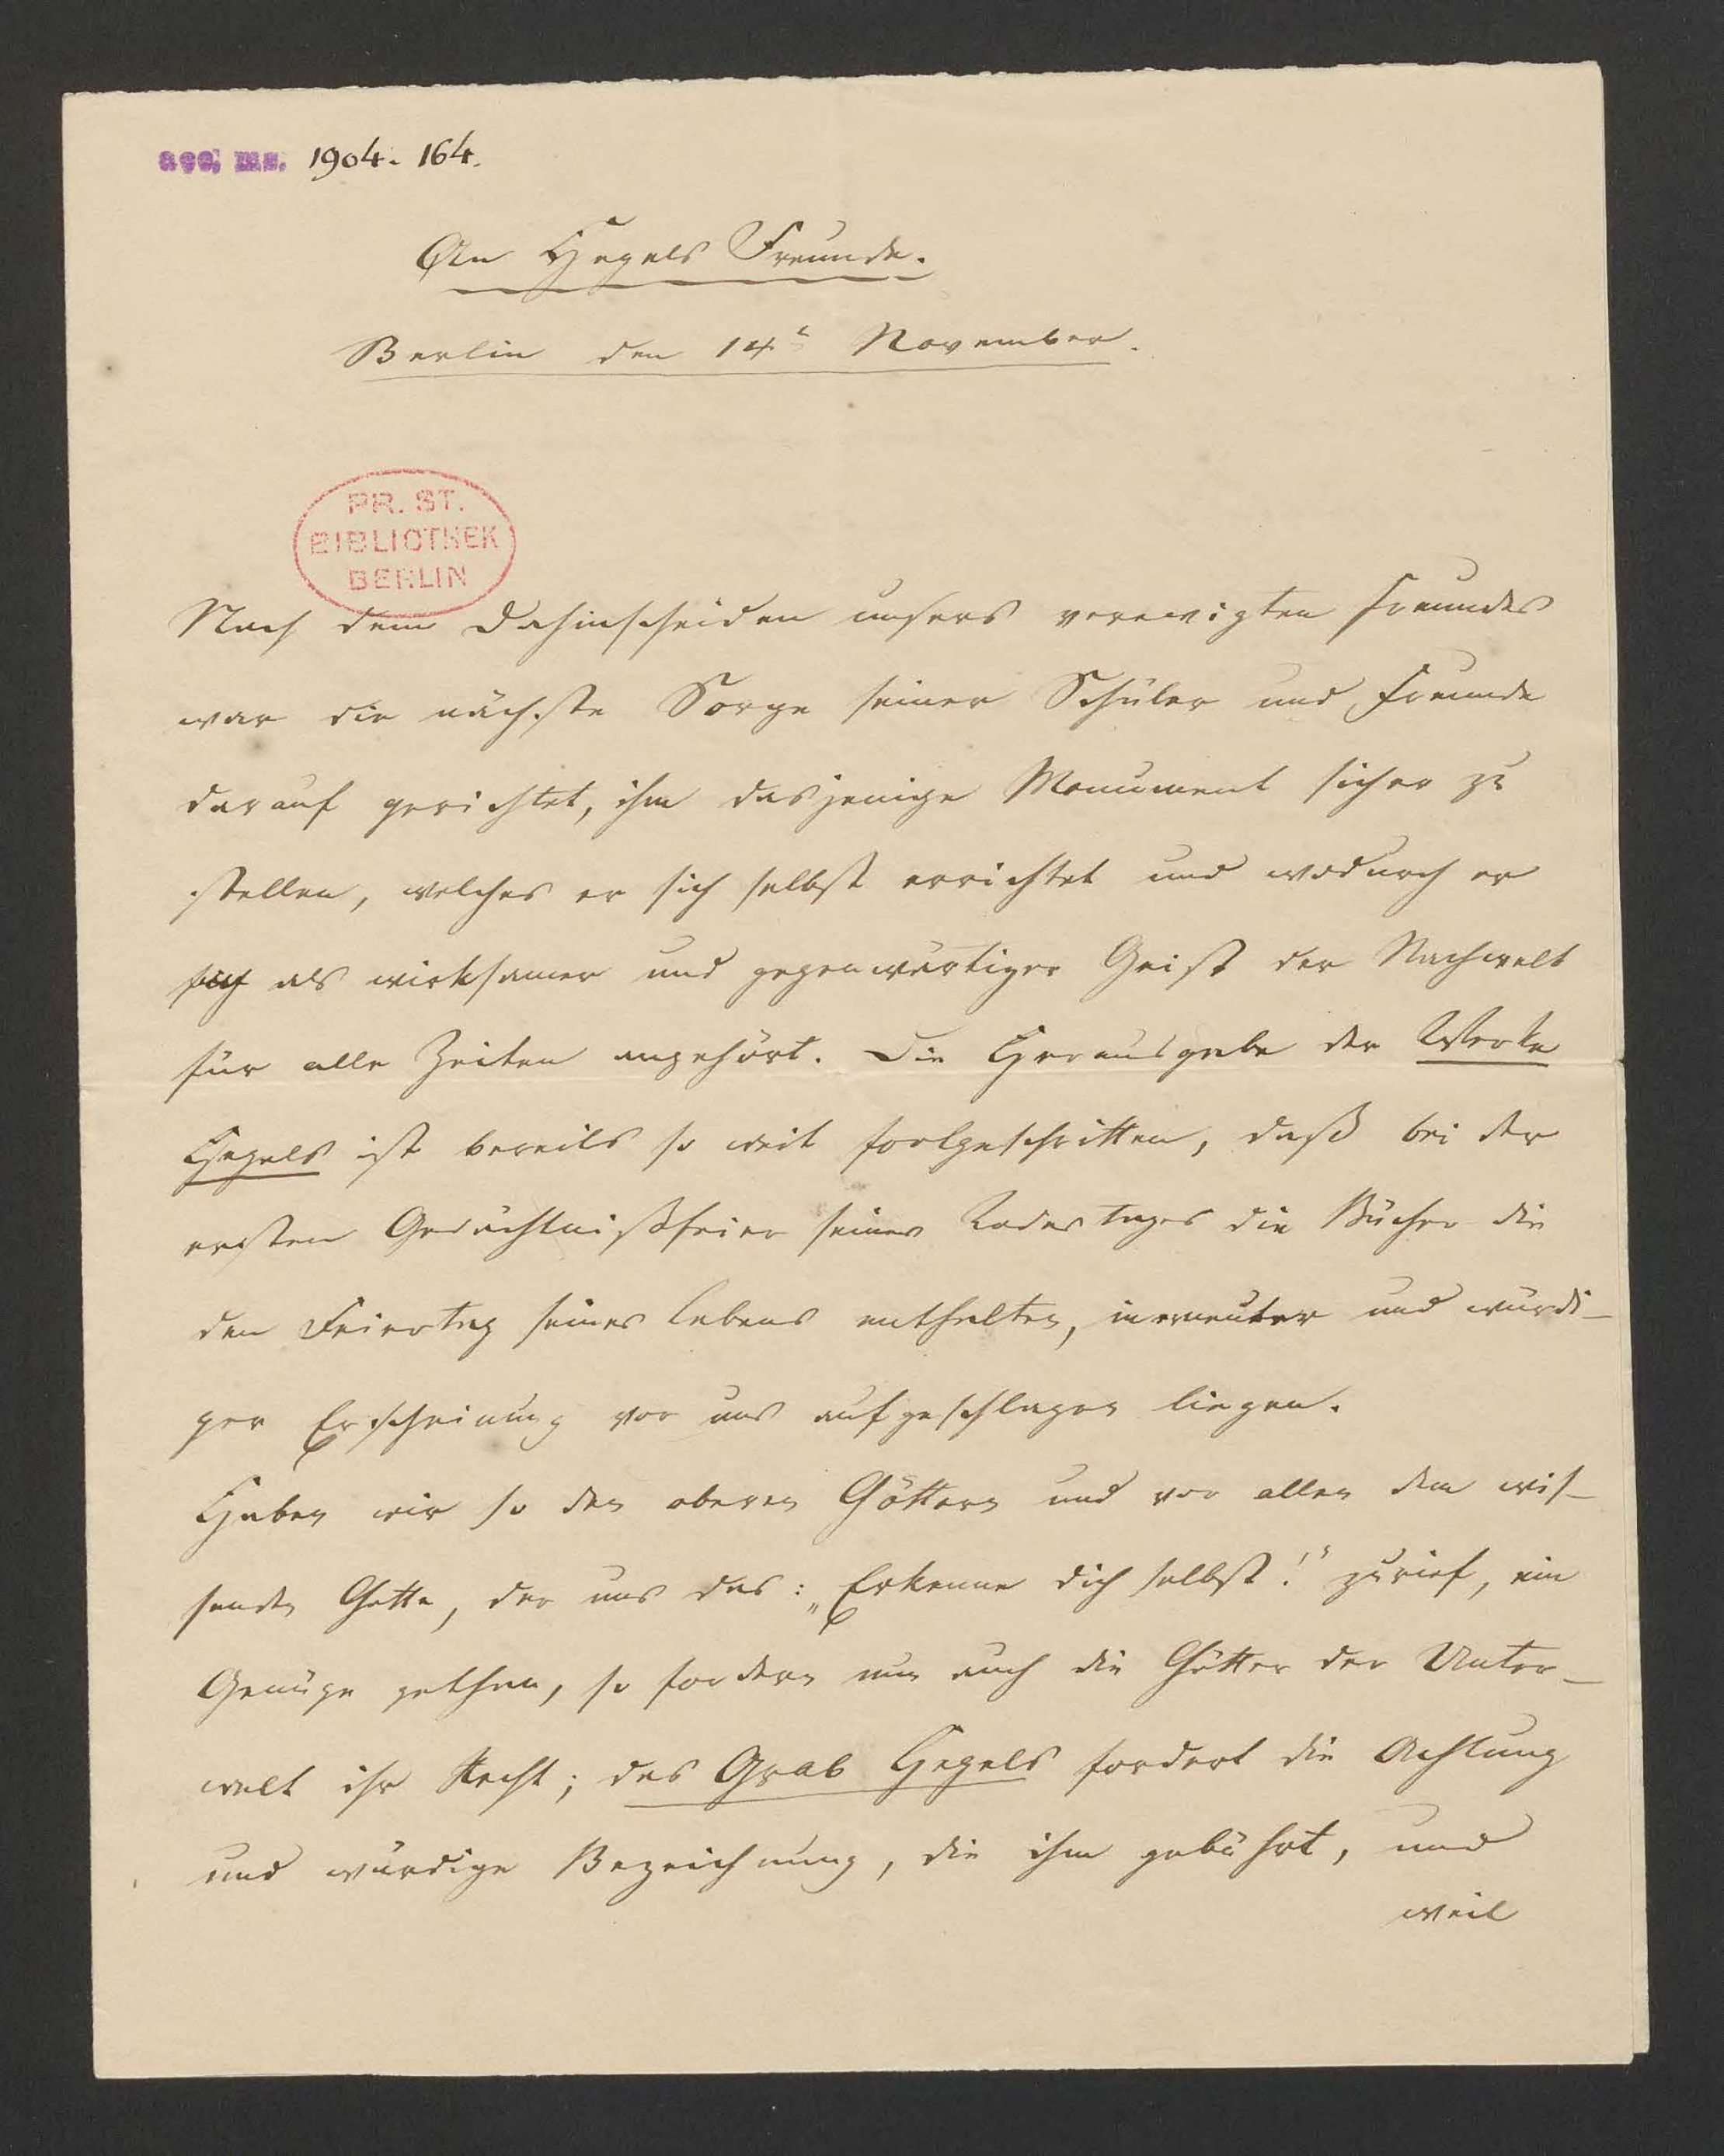 acc. ms. 1904. 164.
An Hegels Freunde.
Berlin den 14t November.
PR. ST.
BIBLIOTHEK
BERLIN
Nach dem Dahinscheiden unsers verewigten Freundes
war die nächste Sorge seiner Schüler und Freunde
darauf gerichtet, ihm dasjenige Monument sicher zu
stellen, welches er sich selbst errichtet und wodurch er
sich als wirksamer und gegenwärtiger Geist der Nachwelt
für alle Zeiten angehört. Die Herausgabe der Werke
Hegels ist bereits so weit fortgeschritten, daß bei der
ersten Gedächtnißfeier seines Todestages die Bücher die
den Feiertag seines Lebens enthalten, in erneuter und würdi-
ger Erscheinung vor uns aufgeschlagen liegen.
Haben wir so den oberen Göttern und vor allen dem wis-
senden Gotte, der uns das: „Erkenne dich selbst!" zurief, ein
Genüge gethan, so fordern nun auch die Götter der Unter-
welt ihr Recht; das Grab Hegels fordert die Achtung
und würdige Bezeichnung, die ihm gebührt, und
weil